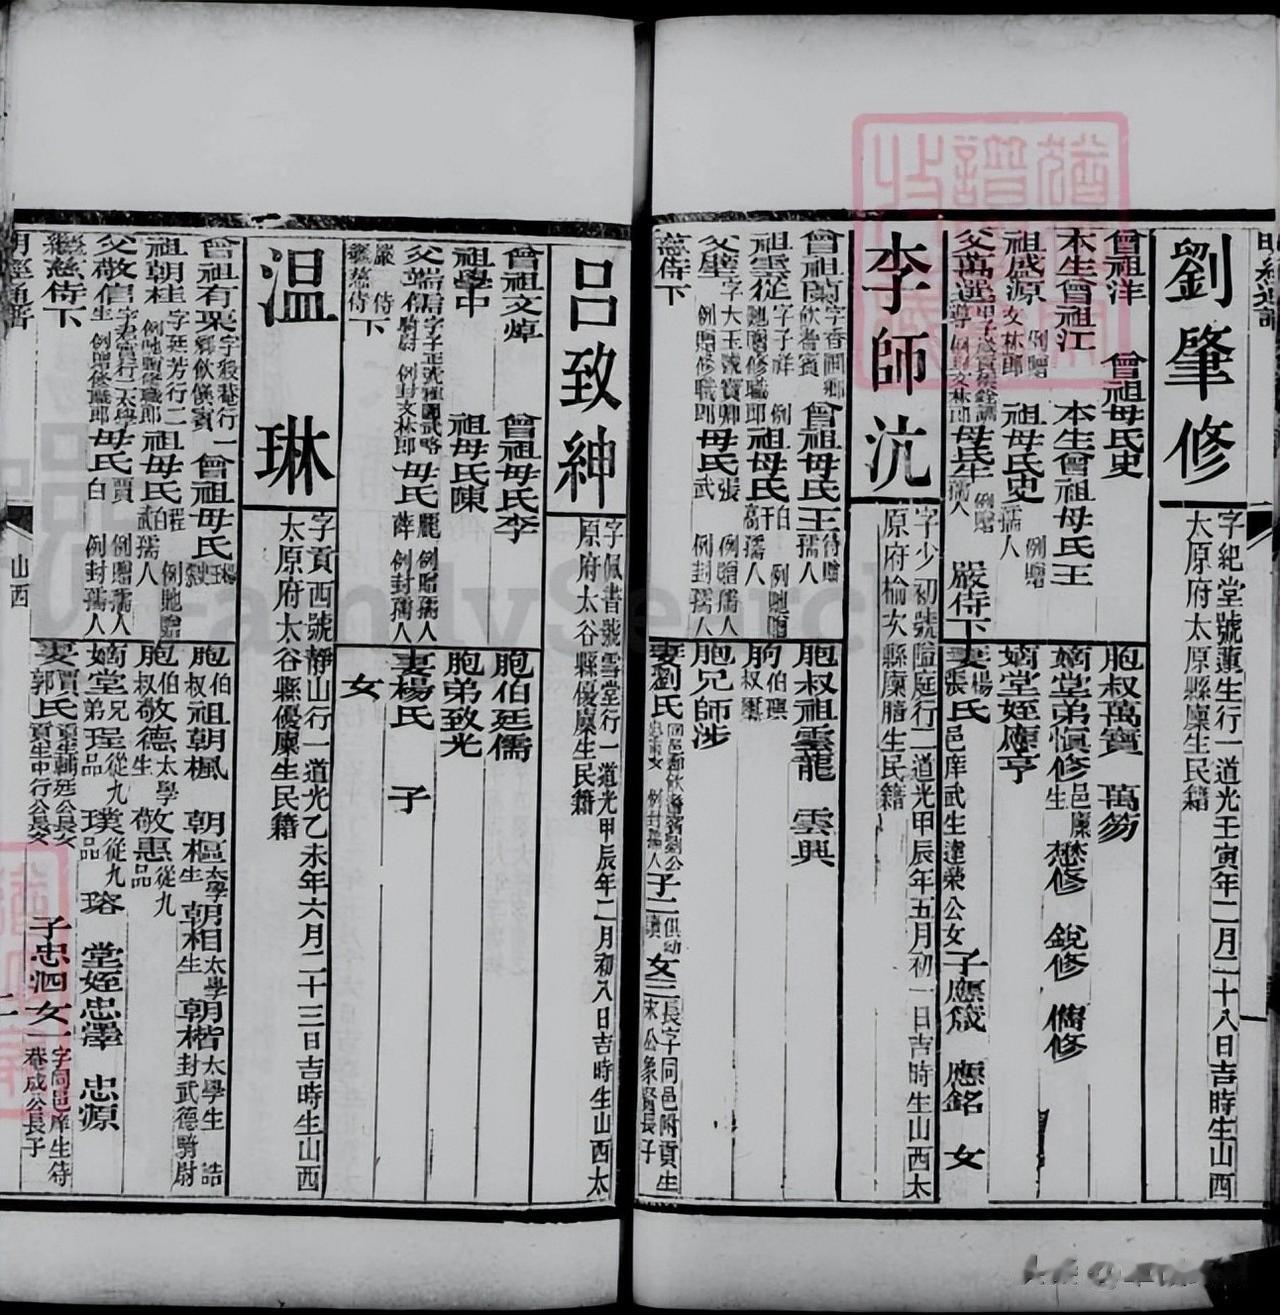 明經通譜
劉肇修
字紀堂號蓮生行一道光壬寅年二月二十八日吉時生山西
太原府太原縣廩生民籍
曾祖洋 曾祖母氏史
本生曾祖江 本生曾祖母氏王
祖盛源 例贈文林郎 祖母氏史 例贈孺人
父萬選 例封文林郎 母氏牛 例贈孺人 嚴侍下
胞叔萬寶 萬笏
嫡堂弟慎修 邑廩生 懋修 銳修 儁修
嫡堂姪應亨
妻楊氏張 邑庠武生達榮公女 子應箴 應銘 女
李師沆
字少初號 庭行二道光甲辰年五月初一日吉時生山西太
原府榆次縣廩膳生民籍
曾祖蘭 字香圃鄉飲耆賓 曾祖母氏王 待贈孺人
祖雲從 字子祥 例貤贈修職郎 祖母氏 例貤贈孺人
父璧 字大玉號寶卿 例贈修職郎 母氏張武 例贈孺人 例封孺人
慈侍下
胞叔祖雲龍 雲興
胞伯 胞叔
胞兄師涉
妻劉氏 子二 俱幼 女三 長字同邑附貢生 宋公象賢長子
呂致紳
字佩書號雪堂行一道光甲辰年二月初八日吉時生山西太
原府太谷縣優廩生民籍
曾祖文焯 曾祖母氏李
祖學中 祖母氏陳
父端儒 字子正 武略騎尉 例封文林郎 母氏 薛 例贈孺人 例封孺人
嚴侍 繼慈侍 下
胞伯廷儒
胞弟致光
妻楊氏 子
女
温琳
字貢西號靜山行一道光乙未年六月二十三日吉時生山西
太原府太谷縣優廩生民籍
曾祖有 行一鄉飲僎賓 曾祖母氏
祖朝桂 字廷芳行二 例貤贈修職郎 祖母氏程 武 例貤贈孺人
父敬信 行二太學生 例贈修職郎 母氏賈白 例贈孺人 例封孺人
繼慈侍下
胞伯叔祖朝楓 朝樞 太學生 朝相 太學生 朝楷 太學生 誥封武德騎尉
胞伯叔敬德 太學生 敬惠 從九品
嫡堂兄弟珵 從九品 璞 從九品 瑢 堂姪忠澤 忠源
妻賈郭氏 貢生中行公長女 子忠泗 女一 字同邑庠生侍 菴成公長子
明經通譜
山西
二
FamilySearch